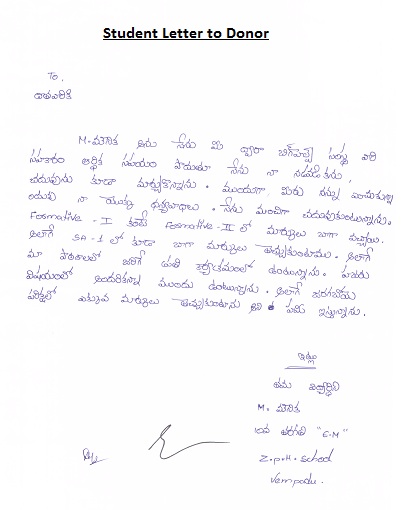 Student Letter to Donor
To,
దాతవారికి
M. మౌనిక అను నేను మీ ద్వారా బిగ్‌హెల్ప్ సంస్థ వారి
సహకారం ఆర్థిక సహాయం పొందుతూ నేను నా
చదువును కూడా మార్చుకొన్నాను. మీరు నన్ను
నా యొక్క ధన్యవాదాలు. నేను మంచిగా చదువుకుంటున్నాను.
Formative - I కంటే Formative - II లో మార్కులు బాగా వచ్చాయి.
అలాగే SA-1 లో కూడా బాగా మార్కులు తెచ్చుకుంటాము. అలాగే
మా పాఠశాలలో జరిగే ప్రతి కార్యక్రమంలో ఉంటున్నాను. హాజరు
విషయంలో అందరికన్నా ముందు ఉంటున్నాను. అలాగే జరగబోయే
పరీక్షల్లో ఎక్కువ మార్కులు తెచ్చుకుంటాను అని హామీ ఇస్తున్నాను.
ఇట్లు
తమ విద్యార్థిని
M. మౌనిక
10వ తరగతి "E.M"
Z.P.H. School
Vempadu.